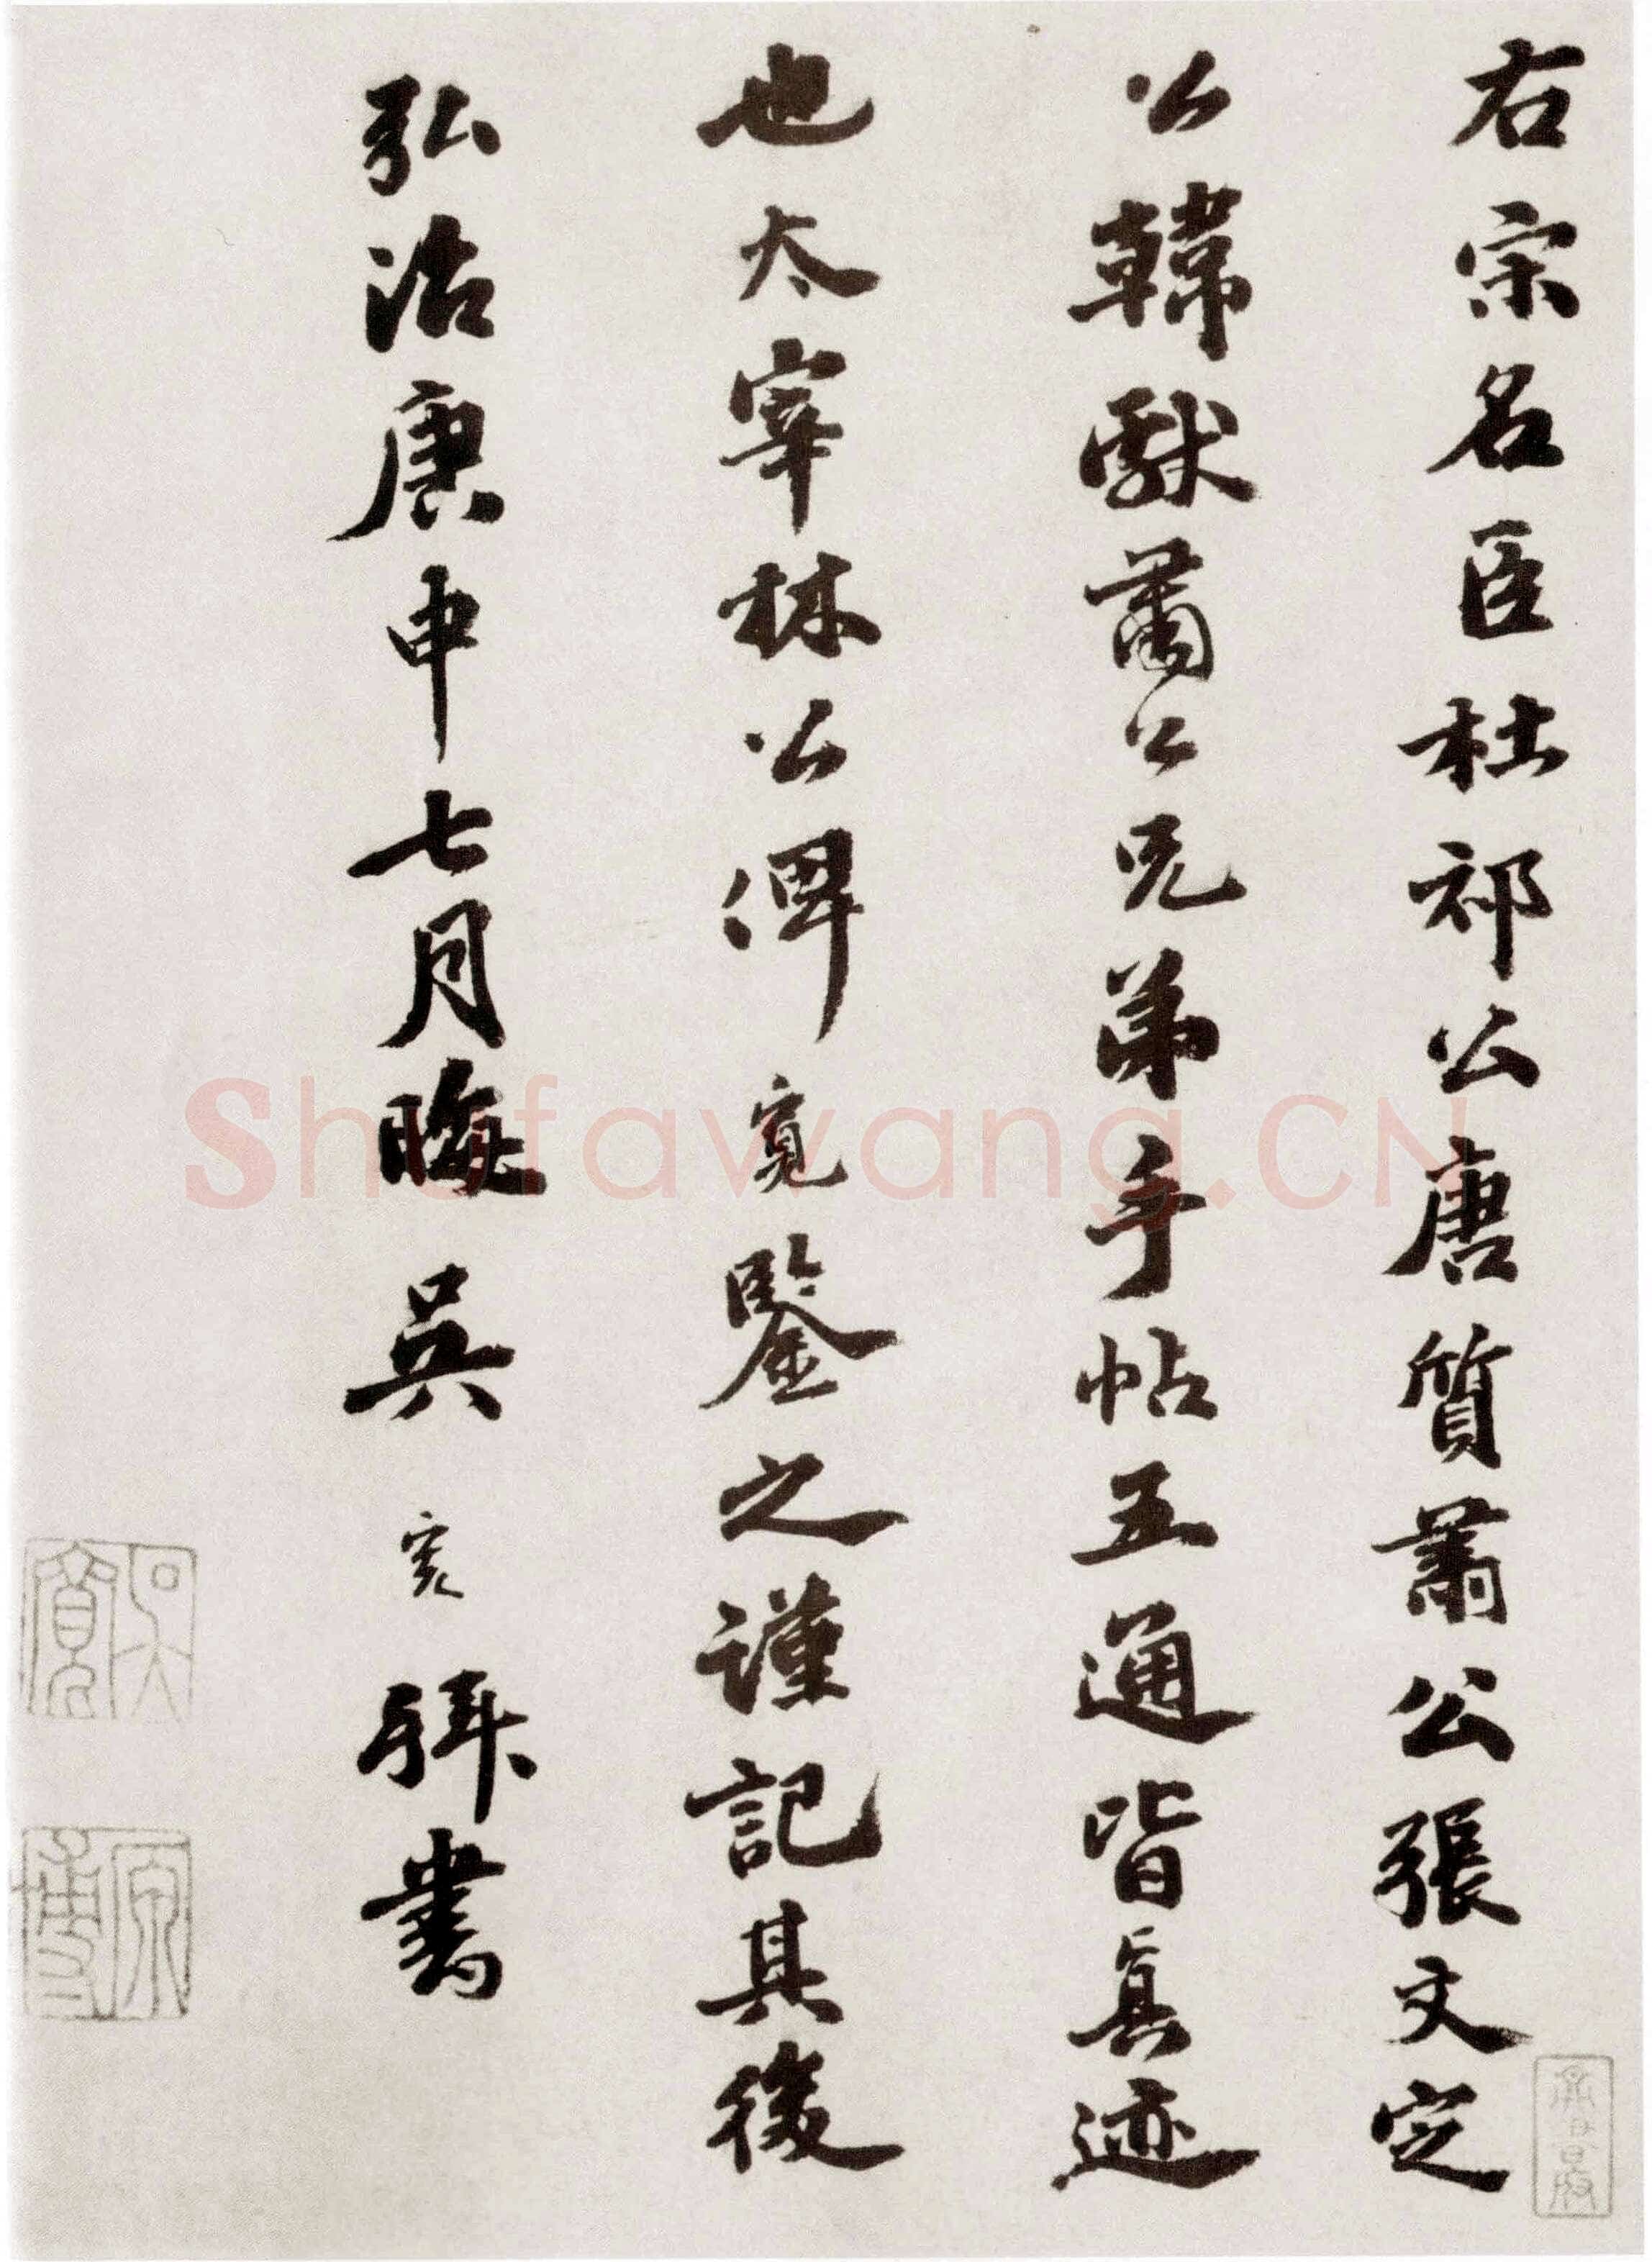 右宋名臣杜祁公唐質肅公張文定
公韓獻肅公兄弟手帖五通皆真迹
也太宰林公俾寬鑒之謹記其後
弘治庚申七月晦吳寬拜書
吳寬
原博
Shufawang.CN